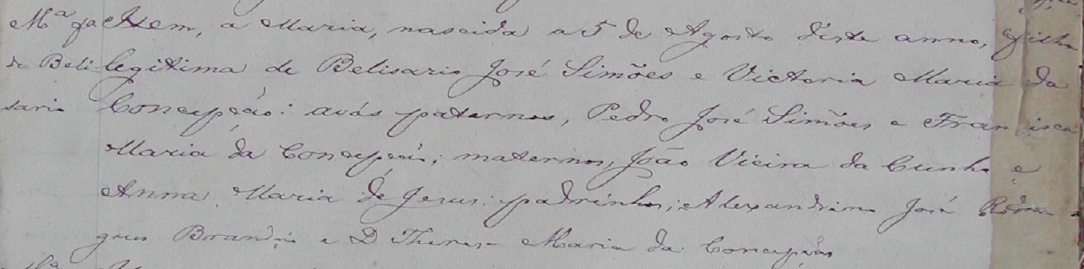 Mª fa Item, a Maria, nascida a 5 de Agosto d'este anno, filha
de Beli legitima de Belisario José Simões e Victoria Maria da
sario Conceição: avós paternos, Pedro José Simões e Francisca
Maria da Conceição; maternos, João Vieira da Cunha e
Anna Maria de Jesus: padrinhos; Alexandrino José Rodri
gues Brandão e D Theresa Maria da Conceição